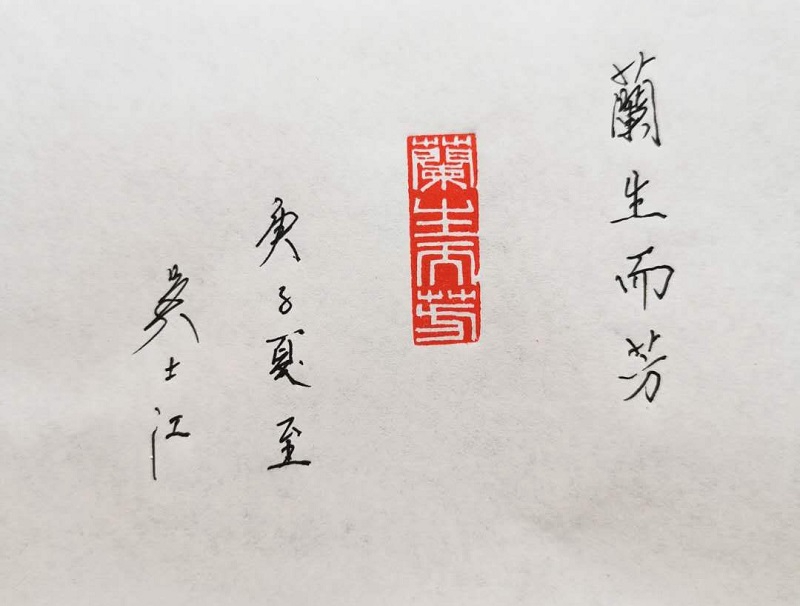 蘭生而芳
蘭生而芳
庚子夏至
吴士江